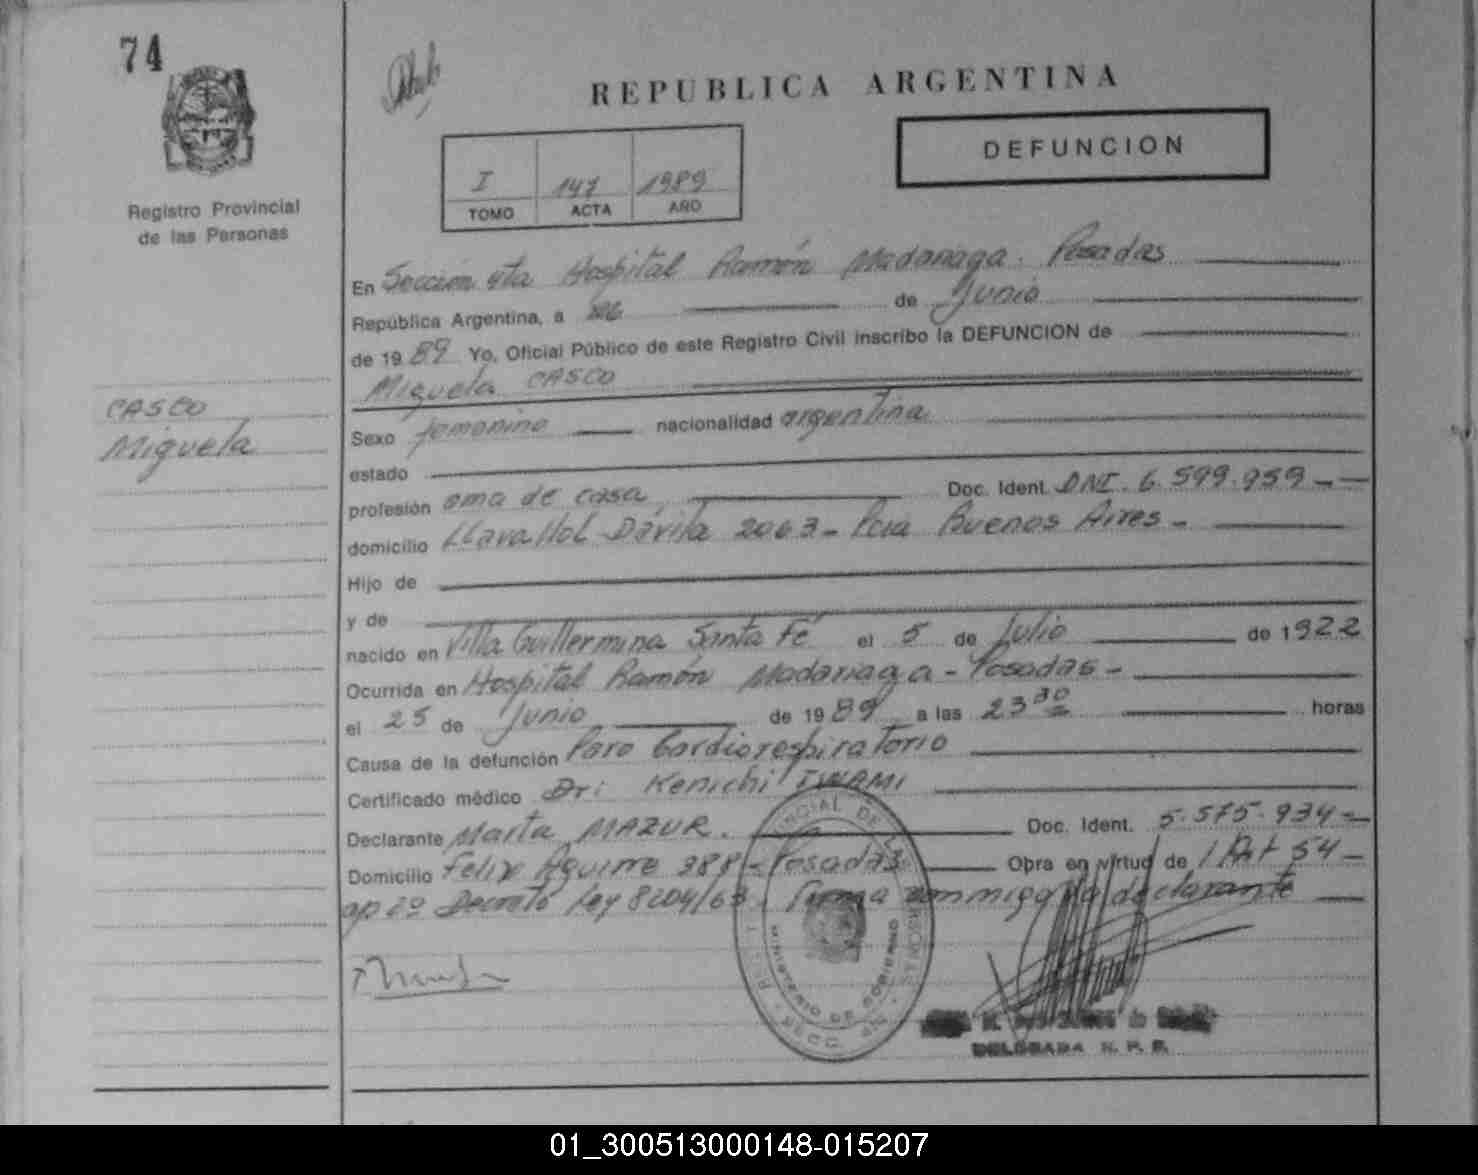 74
REPUBLICA ARGENTINA
DEFUNCION
I 147 1989
TOMO ACTA AÑO
Registro Provincial
de las Personas
CASCO
Miguela
En Sección 4ta Hospital Ramón Madariaga. Posadas
República Argentina, a 26 de Junio
de 1989 Yo, Oficial Público de este Registro Civil inscribo la DEFUNCION de
Miguela CASCO
Sexo femenino nacionalidad argentina
estado
profesión ama de casa Doc. Ident. DNI. 6.599.959
domicilio LLavallol-Dávila 2063- Pcia Buenos Aires-
Hijo de
y de
nacido en Villa Guillermina Santa Fé el 5 de Julio de 1922
Ocurrida en Hospital Ramón Madariaga-Posadas-
el 25 de Junio de 1989 a las 23 30 horas
Causa de la defunción Paro Cardiorespiratorio
Certificado médico Dr: Kenichi IWAMI
Declarante Marta MAZUR. Doc. Ident. 5.575.934-
Domicilio Felix Aguirre 288-Posadas Obra en virtud de l Art 54-
ap 2º Decreto Ley 8204/63. Firma conmigo la declarante
MINISTERIO DE GOBIERNO
DELEGADA R. P. P.
01_300513000148-015207